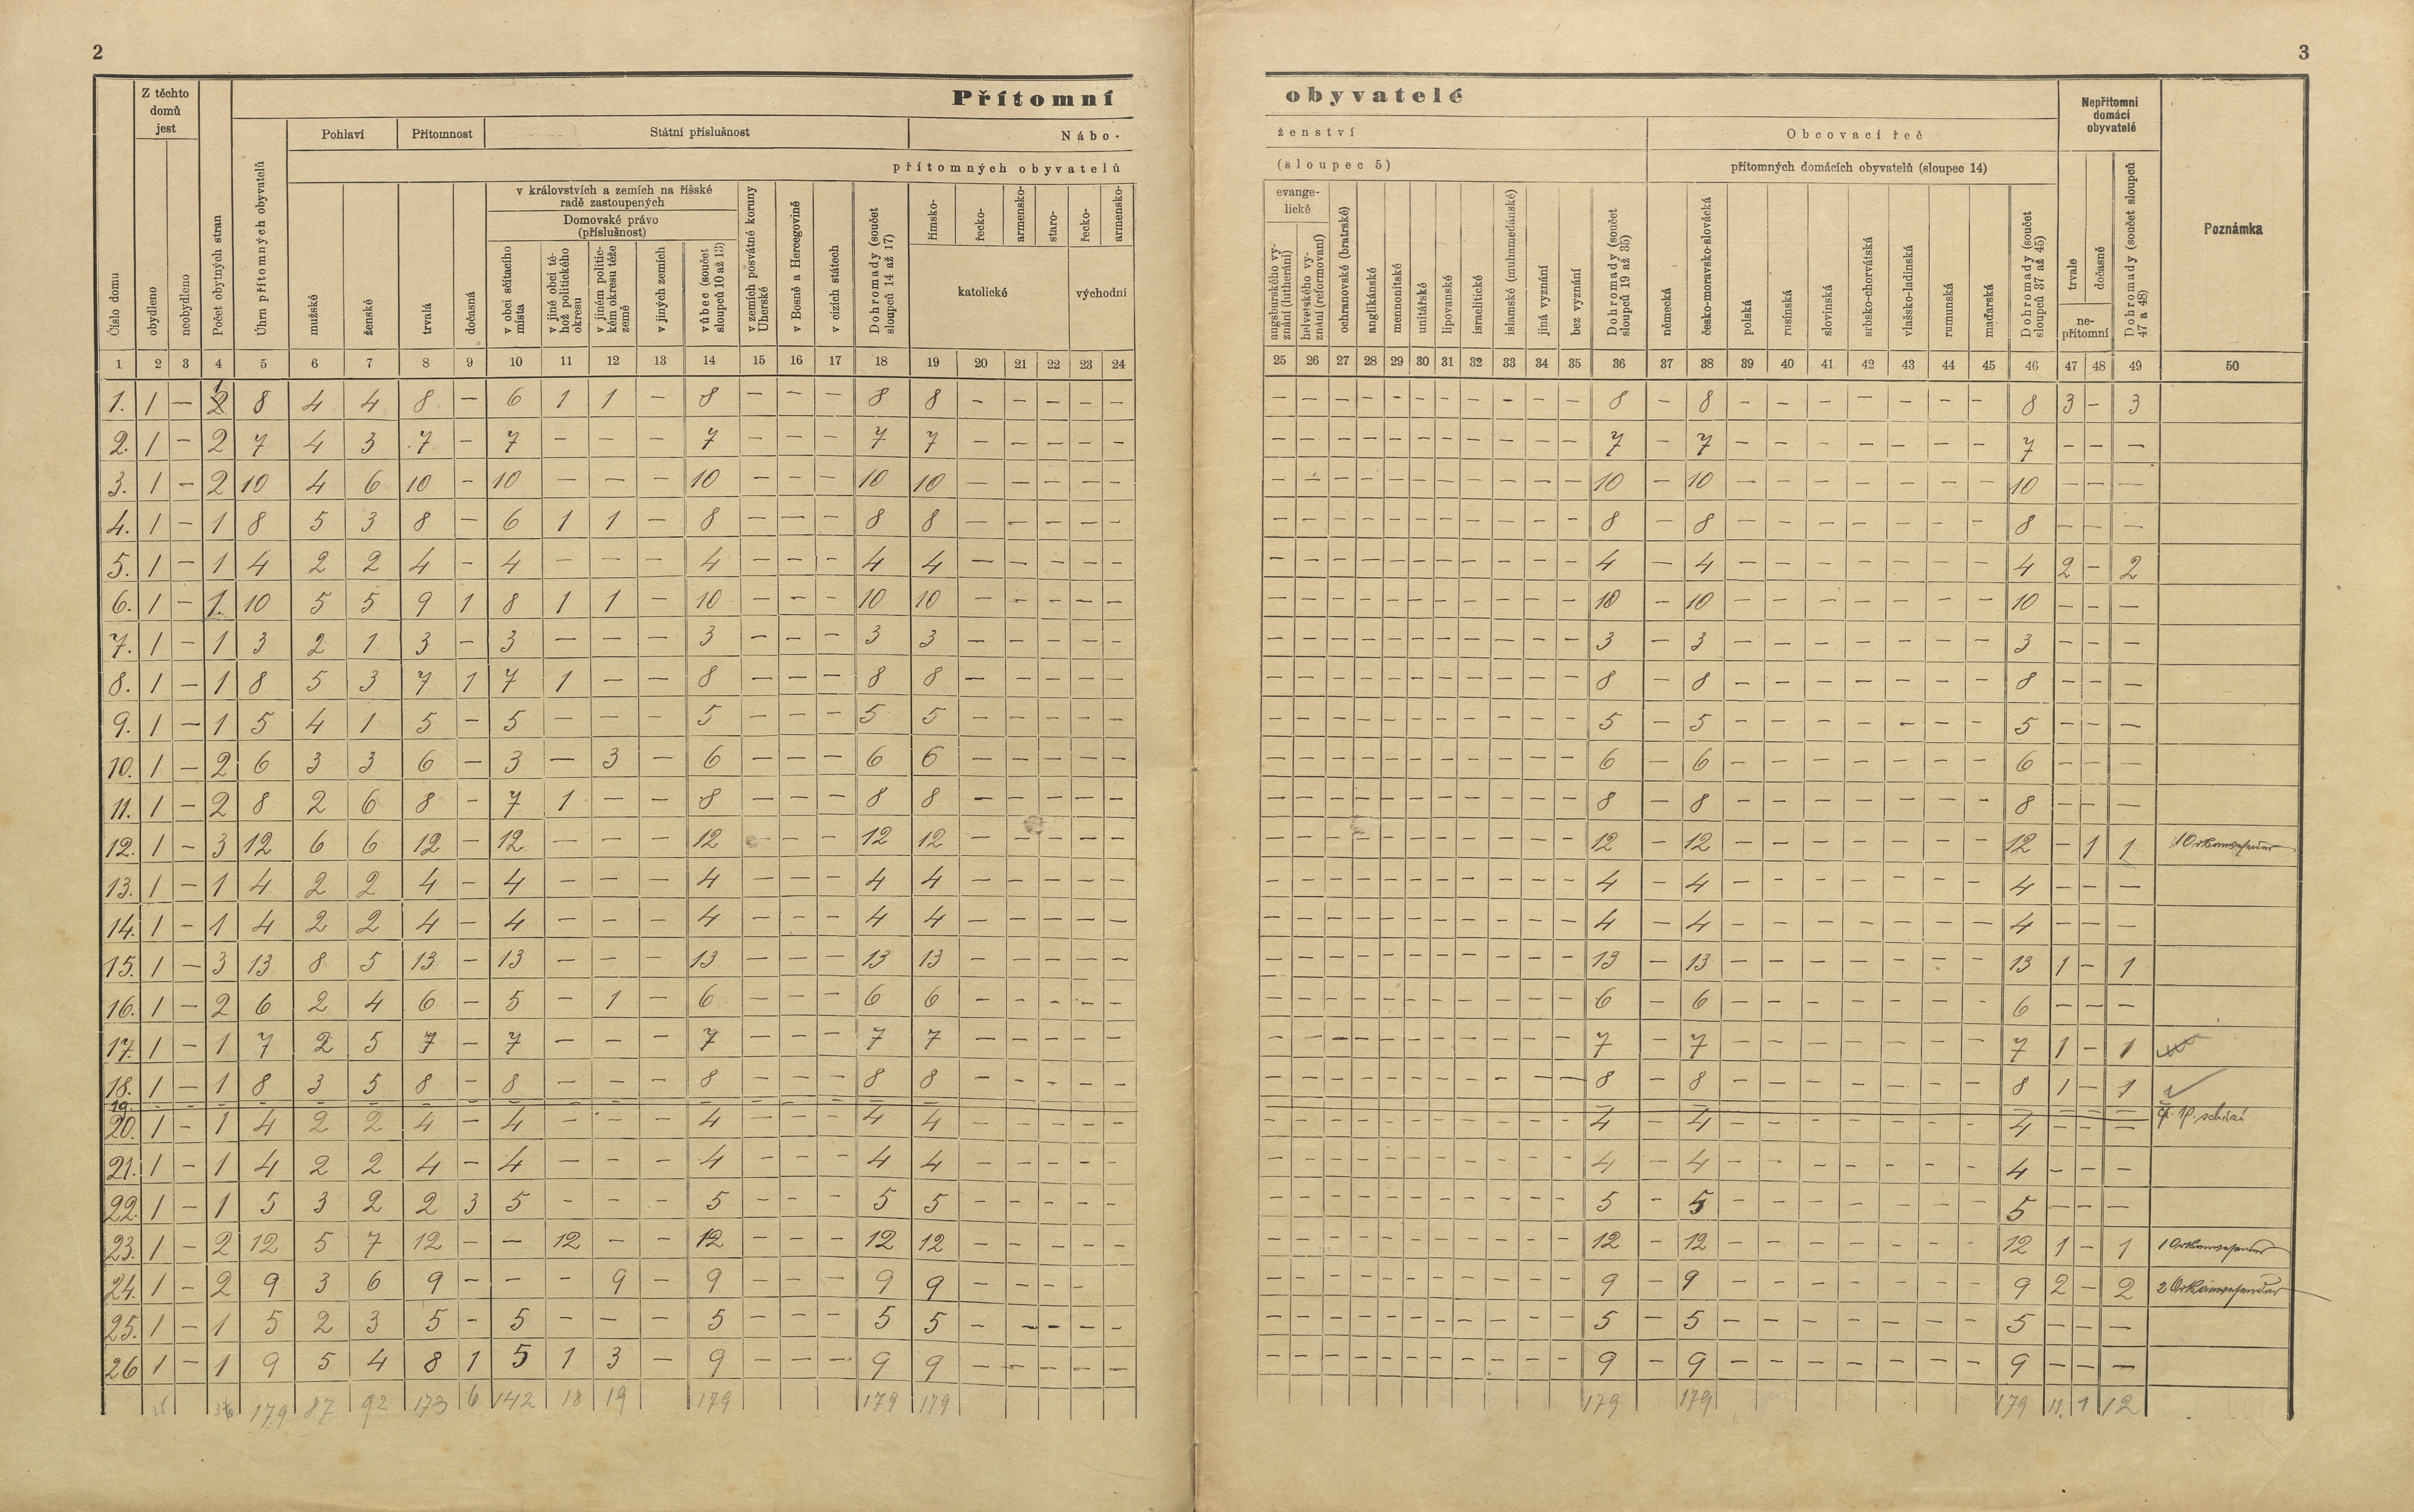 2
3
Z těchto domů jest
Přítomní obyvatelé
Nepřítomní domácí obyvatelé
Pohlaví Přítomnost Státní příslušnost Nábo- ženství Obcovací řeč
přítomných obyvatelů (sloupec 5) přítomných domácích obyvatelů (sloupec 14)
v královstvích a zemích na říšské radě zastoupených
Domovské právo (příslušnost)
evange- lické
Číslo domu
obydleno
neobydleno
Počet obytných stran
Úhrn přítomných obyvatelů
mužské
ženské
trvalá
dočasná
v obci sčítacího místa
v jiné obci téhož politického okresu
v jiném politickém okresu téže země
v jiných zemích
vůbec (součet sloupců 10 až 13)
v zemích posvátné koruny Uherské
v Bosně a Hercegovině
v cizích státech
Dohromady (součet sloupců 14 až 17)
římsko-
řecko-
armensko-
staro-
katolické
řecko-
armensko-
východní
augsburského vyznání (lutheráni)
helvetského vyznání (reformovaní)
ochranovské (bratrské)
anglikánské
mennonitské
unitářské
lipovanské
israelitické
islamské (muhamedánské)
jiná vyznání
bez vyznání
Dohromady (součet sloupců 19 až 35)
německá
česko-moravsko-slovácká
polská
rusínská
slovinská
srbsko-chorvátská
vlašsko-ladinská
rumunská
maďarská
Dohromady (součet sloupců 37 až 45)
trvale
dočasně
ne- přítomní
Dohromady (součet sloupců 47 a 48)
Poznámka
1 2 3 4 5 6 7 8 9 10 11 12 13 14 15 16 17 18 19 20 21 22 23 24 25 26 27 28 29 30 31 32 33 34 35 36 37 38 39 40 41 42 43 44 45 46 47 48 49 50
1. 1 – 1 8 4 4 8 – 6 1 1 – 8 – – – 8 8 – – – – – – – – – – – – – – – – 8 – 8 – – – – – – – 8 3 – 3
2. 1 – 2 7 4 3 7 – 7 – – – 7 – – – 7 7 – – – – – – – – – – – – – – – – 7 – 7 – – – – – – – 7 – – –
3. 1 – 2 10 4 6 10 – 10 – – – 10 – – – 10 10 – – – – – – – – – – – – – – – – 10 – 10 – – – – – – – 10 – – –
4. 1 – 1 8 5 3 8 – 6 1 1 – 8 – – – 8 8 – – – – – – – – – – – – – – – – 8 – 8 – – – – – – – 8 – – –
5. 1 – 1 4 2 2 4 – 4 – – – 4 – – – 4 4 – – – – – – – – – – – – – – – – 4 – 4 – – – – – – – 4 2 – 2
6. 1 – 1. 10 5 5 9 1 8 1 1 – 10 – – – 10 10 – – – – – – – – – – – – – – – – 10 – 10 – – – – – – – 10 – – –
7. 1 – 1 3 2 1 3 – 3 – – – 3 – – – 3 3 – – – – – – – – – – – – – – – – 3 – 3 – – – – – – – 3 – – –
8. 1 – 1 8 5 3 7 1 7 1 – – 8 – – – 8 8 – – – – – – – – – – – – – – – – 8 – 8 – – – – – – – 8 – – –
9. 1 – 1 5 4 1 5 – 5 – – – 5 – – – 5 5 – – – – – – – – – – – – – – – – 5 – 5 – – – – – – – 5 – – –
10. 1 – 2 6 3 3 6 – 3 – 3 – 6 – – – 6 6 – – – – – – – – – – – – – – – – 6 – 6 – – – – – – – 6 – – –
11. 1 – 2 8 2 6 8 – 7 1 – – 8 – – – 8 8 – – – – – – – – – – – – – – – – 8 – 8 – – – – – – – 8 – – –
12. 1 – 3 12 6 6 12 – 12 – – – 12 – – – 12 12 – – – – – – – – – – – – – – – – 12 – 12 – – – – – – – 12 – 1 1 1
13. 1 – 1 4 2 2 4 – 4 – – – 4 – – – 4 4 – – – – – – – – – – – – – – – – 4 – 4 – – – – – – – 4 – – –
14. 1 – 1 4 2 2 4 – 4 – – – 4 – – – 4 4 – – – – – – – – – – – – – – – – 4 – 4 – – – – – – – 4 – – –
15. 1 – 3 13 8 5 13 – 13 – – – 13 – – – 13 13 – – – – – – – – – – – – – – – – 13 – 13 – – – – – – – 13 1 – 1
16. 1 – 2 6 2 4 6 – 5 – 1 – 6 – – – 6 6 – – – – – – – – – – – – – – – – 6 – 6 – – – – – – – 6 – – –
17. 1 – 1 7 2 5 7 – 7 – – – 7 – – – 7 7 – – – – – – – – – – – – – – – – 7 – 7 – – – – – – – 7 1 – 1
18. 1 – 1 8 3 5 8 – 8 – – – 8 – – – 8 8 – – – – – – – – – – – – – – – – 8 – 8 – – – – – – – 8 1 – 1
19. schází
20. 1 – 1 4 2 2 4 – 4 – – – 4 – – – 4 4 – – – – – – – – – – – – – – – – 4 – 4 – – – – – – – 4 – – –
21. 1 – 1 4 2 2 4 – 4 – – – 4 – – – 4 4 – – – – – – – – – – – – – – – – 4 – 4 – – – – – – – 4 – – –
22. 1 – 1 5 3 2 2 3 5 – – – 5 – – – 5 5 – – – – – – – – – – – – – – – – 5 – 5 – – – – – – – 5 – – –
23. 1 – 2 12 5 7 12 – – 12 – – 12 – – – 12 12 – – – – – – – – – – – – – – – – 12 – 12 – – – – – – – 12 1 – 1 1
24. 1 – 2 9 3 6 9 – – – 9 – 9 – – – 9 9 – – – – – – – – – – – – – – – 9 – 9 – – – – – – – 9 2 – 2 2
25. 1 – 1 5 2 3 5 – 5 – – – 5 – – – 5 5 – – – – – – – – – – – – – – – – 5 – 5 – – – – – – – 5 – – –
26 1 – 1 9 5 4 8 1 5 1 3 – 9 – – – 9 9 – – – – – – – – – – – – – – – – 9 – 9 – – – – – – – 9 – – –
179 87 92 173 6 142 18 19 179 179 179 179 179 179 11. 1 12